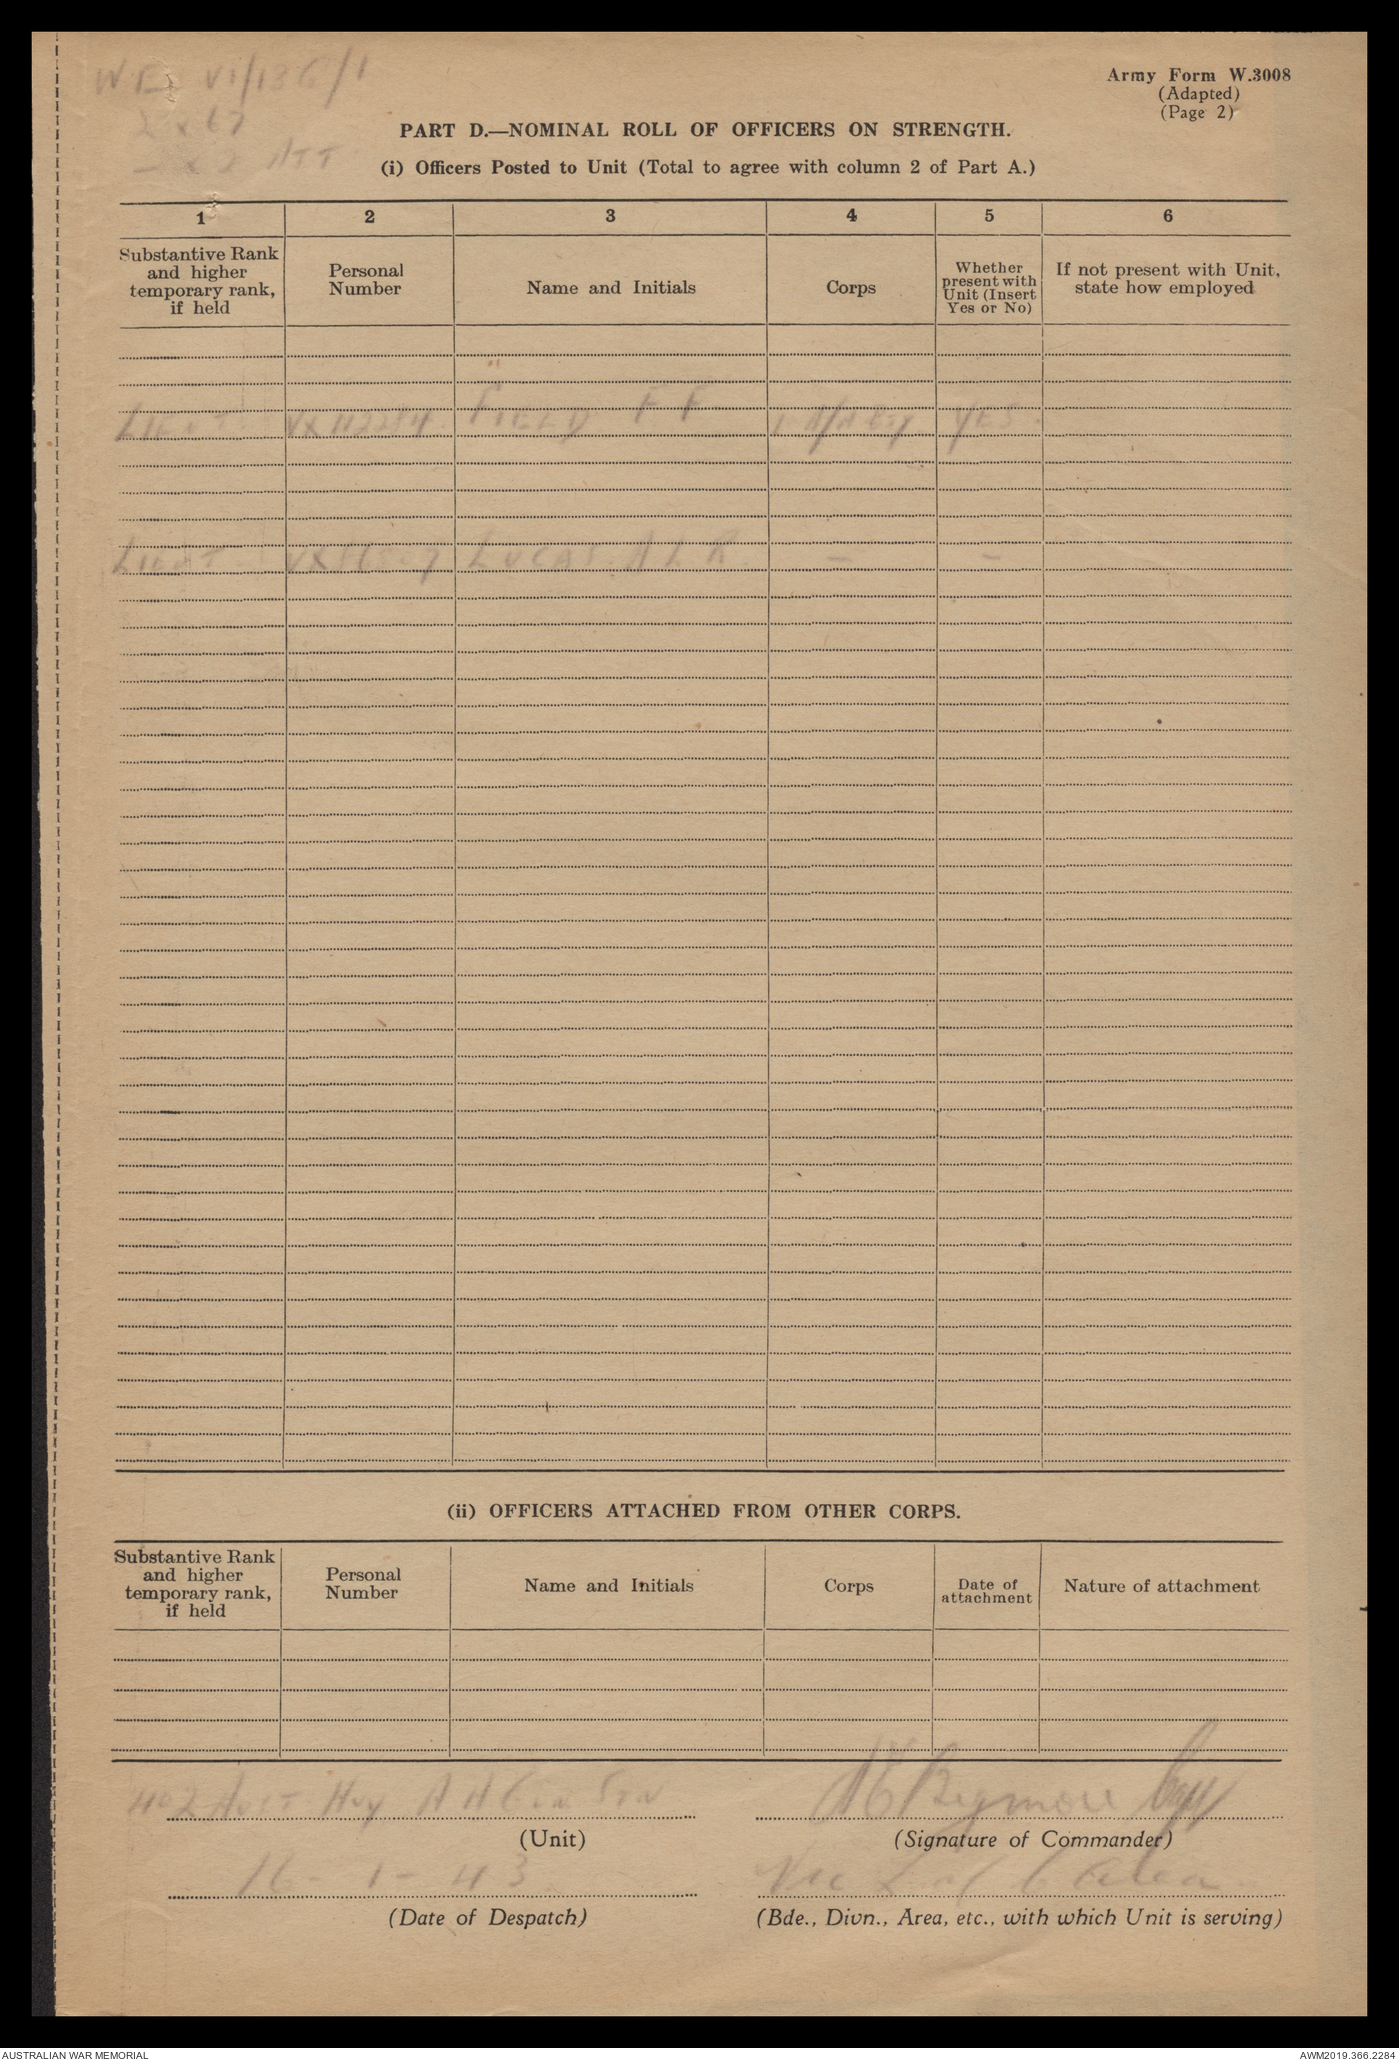 WE VI/136/1
2 x 67
- x 2 ATT
Army Form W.3008
(Adapted)
(Page 2)
PART D.—NOMINAL ROLL OF OFFICERS ON STRENGTH.
(i) Officers Posted to Unit (Total to agree with column 2 of Part A.)
1 2 3 4 5 6
Substantive Rank and higher temporary rank, if held
Personal Number
Name and Initials
Corps
Whether present with Unit (Insert Yes or No)
If not present with Unit, state how employed
LIEUT VX112284 FIELD F F A/A Bty YES
LIEUT LUCAS A L R. — —
(ii) OFFICERS ATTACHED FROM OTHER CORPS.
Substantive Rank and higher temporary rank, if held
Personal Number
Name and Initials
Corps
Date of attachment
Nature of attachment
402 Aust Hvy A A Gun Stn
(Unit)
(Signature of Commander)
16 - 1 - 43
Vic L of C Area
(Date of Despatch)
(Bde., Divn., Area, etc., with which Unit is serving)
AUSTRALIAN WAR MEMORIAL
AWM2019.366.2284